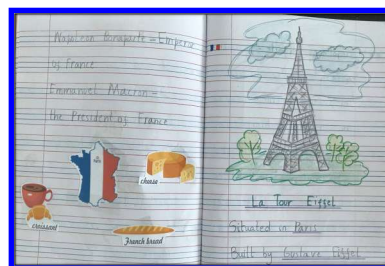 Napoleon Bonaparte = Emperor
of France
Emmanuel Macron =
the President of France
cheese
croissant
French bread
La Tour Eiffel
Situated in Paris
Built by Gustave Eiffel